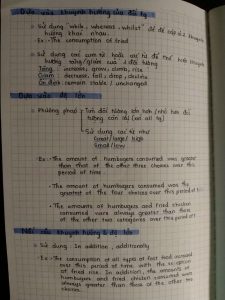 Dựa vào khuynh hướng của đối tg
Sử dụng "while, whereas, whilst" để đề cập 2 khuynh
hướng khác nhau.
Ex: The consumption of fried
Sử dụng các cụm từ hoặc các từ để nói khuynh
hướng tăng/giảm của 1 đối tượng
Tăng : increase, grow, climb, rise
Giảm : decrease, fall, drop, decline
Ổn định : remain stable / unchanged
Dựa vào độ lớn
Phương pháp
Tìm đối tượng lớn hơn / nhỏ hơn đối
tượng còn lại
Sử dụng các từ như
Great / large / high
Small / low
Ex: The amount of hamburgers consumed was greater
than that of the other three choices over this
period of time
The amount of hamburgers consumed was the
greatest of the four choices over this period of
The amounts of hamburgers and fried chicken
consumed were always greater than those of
the other two categories over this period of
Nối vừa khuynh hướng & độ lớn
Sử dụng: In addition, additionally
Ex: The consumption of all types of fast food increased
over this period of time with the exception
of fried rice. In addition, the amounts of
hamburgers and fried chicken consumed were
always greater than those of the other two
choices.